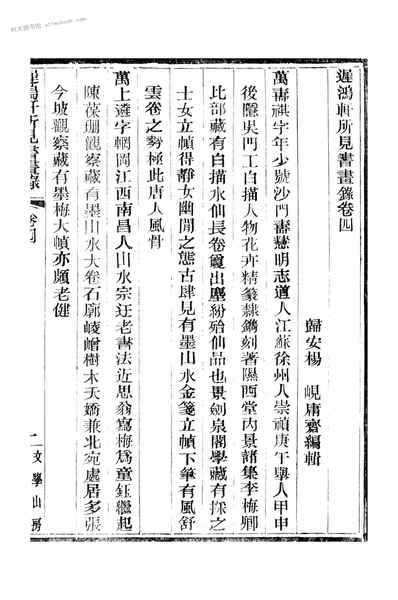 遲鴻軒所見書畫錄卷四
歸安楊 峴庸齋編輯
萬壽祺字年少號沙門壽慧明志道人江蘇徐州人崇禎庚午舉人甲申
後隱吳門工白描人物花卉精篆隸鐫刻著隰西堂內景諸集李梅卿
比部藏有白描水仙長卷
出塵
仙品也
劍泉閣學藏有採之
士女立幀得靜女幽閒之態古肆見有墨山水金箋立幀下筆有風舒
雲卷之勢極此唐人風骨
萬上遴字輞岡江西南昌人山水宗廷老書法近思翁寫梅爲童鈺繼起
陳葆珊觀察藏有墨山水大卷石廓崚嶒樹木夭矯兼北宛處居多張
今坡觀察藏有墨梅大幀亦頗老健
遲鴻軒所見書畫錄
卷四
一
文學山房